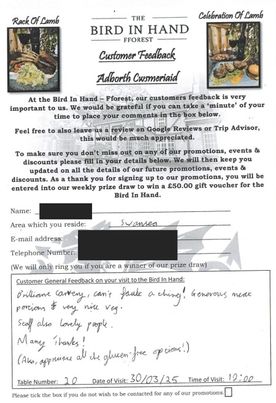 Rack Of Lamb
Celebration Of Lamb
THE
BIRD IN HAND
FFOREST
Customer Feedback
Adborth Cwsmeriaid
At the Bird In Hand – Fforest, our customers feedback is very
important to us. We would be grateful if you can take a 'minute' of your
time to place your comments in the box below.
Feel free to also leave us a review on Google Reviews or Trip Advisor,
this would be much appreciated.
To make sure you don't miss out on any of our promotions, events &
discounts please fill in your details below. We will then keep you
updated on all the details of our future promotions, events &
discounts. As a thank you for signing up to our promotions, you will be
entered into our weekly prize draw to win a £50.00 gift voucher for the
Bird In Hand.
Name:
Area which you reside: Swansea
E-mail address:
Telephone Number:
(We will only ring you if you are a winner of our prize draw)
Customer General Feedback on your visit to the Bird In Hand:
Brilliant carvery, can't fault a thing! Generous meat
portions & very nice veg.
Staff also lovely people.
Many Thanks!
(Also, appreciate all the gluten-free options!)
Table Number: 20 Date of Visit: 30/03/25 Time of Visit: 17:00
Please tick the box if you do not wish to be contacted for any of our promotions.